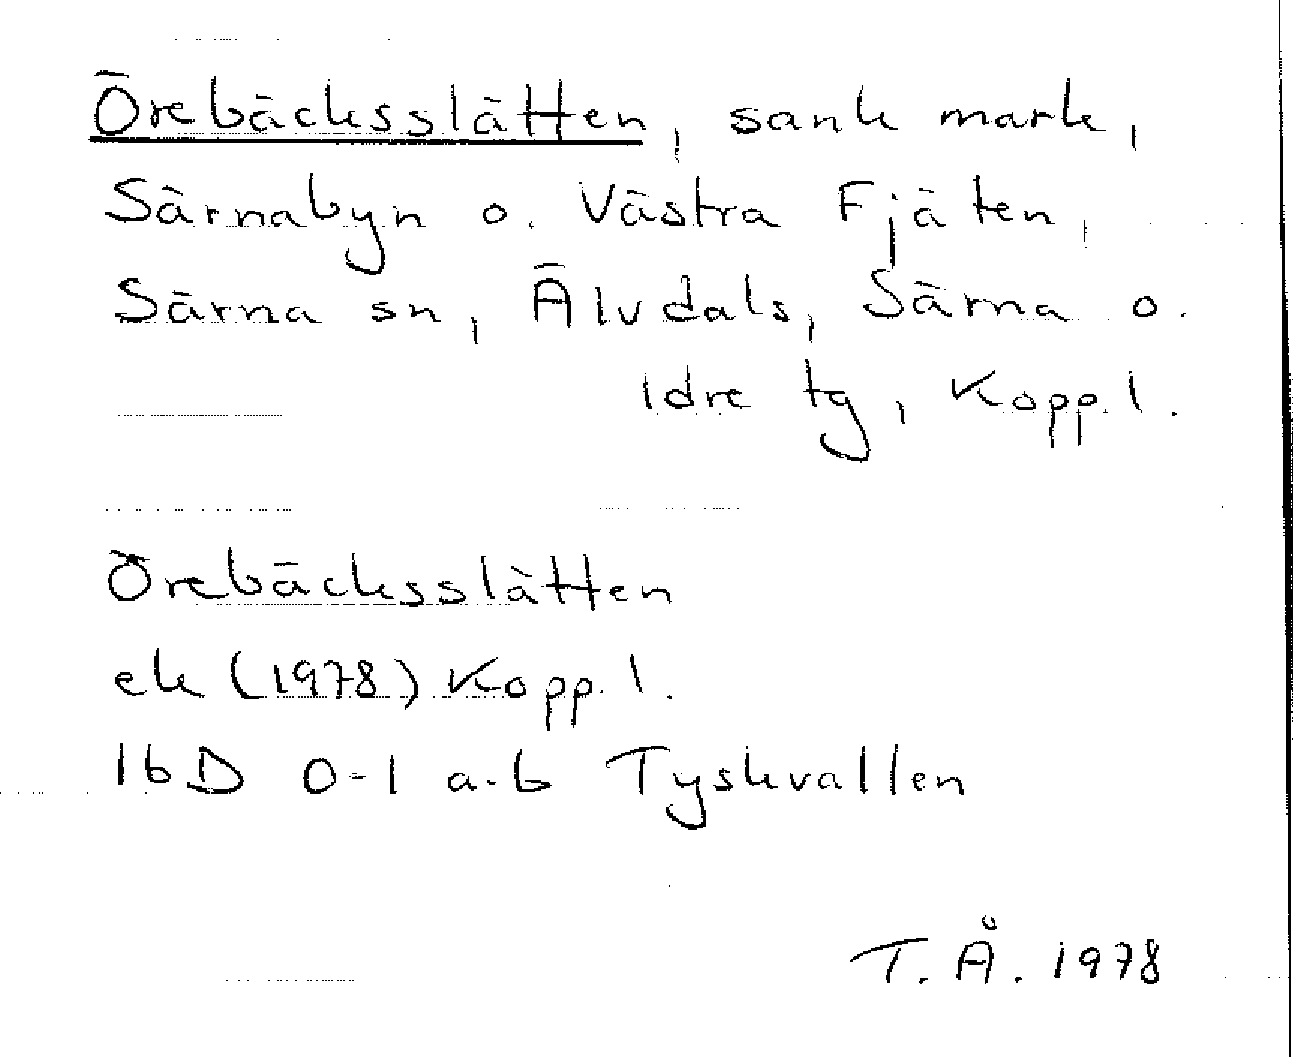 Örebäcksslätten, sank mark,
Särnabyn o. Västra Fjäten,
Särna sn, Älvdals, Särna o.
Idre tg, Kopp. l.
Örebäcksslätten
ek (1978) Kopp. l.
16D 0-1 a-b Tyskvallen
T. Å. 1978